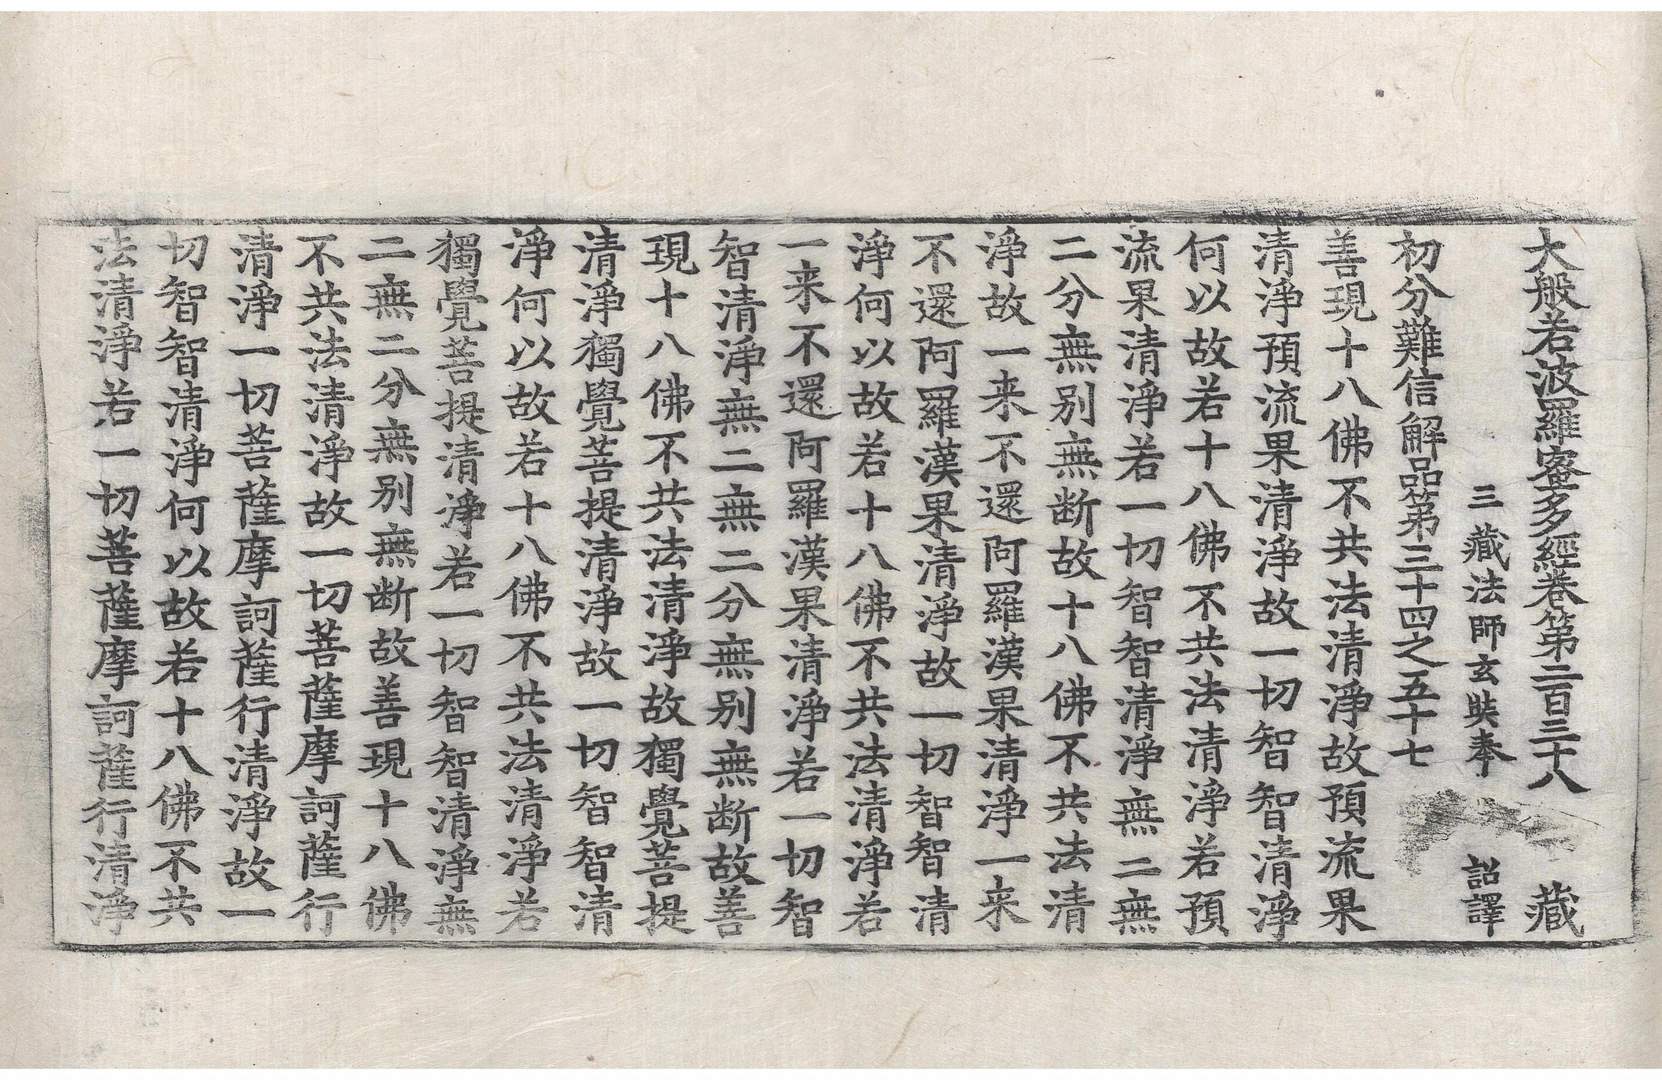 大般若波羅蜜多經卷第二百三十八　藏
三藏法師玄奘奉　詔譯
初分難信解品第三十四之五十七
善現十八佛不共法清淨故預流果
清淨預流果清淨故一切智智清淨
何以故若十八佛不共法清淨若預
流果清淨若一切智智清淨無二無
二分無別無断故十八佛不共法清
淨故一来不還阿羅漢果清淨一来
不還阿羅漢果清淨故一切智智清
淨何以故若十八佛不共法清淨若
一来不還阿羅漢果清淨若一切智
智清淨無二無二分無別無断故善
現十八佛不共法清淨故獨覺菩提
清淨獨覺菩提清淨故一切智智清
淨何以故若十八佛不共法清淨若
獨覺菩提清淨若一切智智清淨無
二無二分無別無断故善現十八佛
不共法清淨故一切菩薩摩訶薩行
清淨一切菩薩摩訶薩行清淨故一
切智智清淨何以故若十八佛不共
法清淨若一切菩薩摩訶薩行清淨